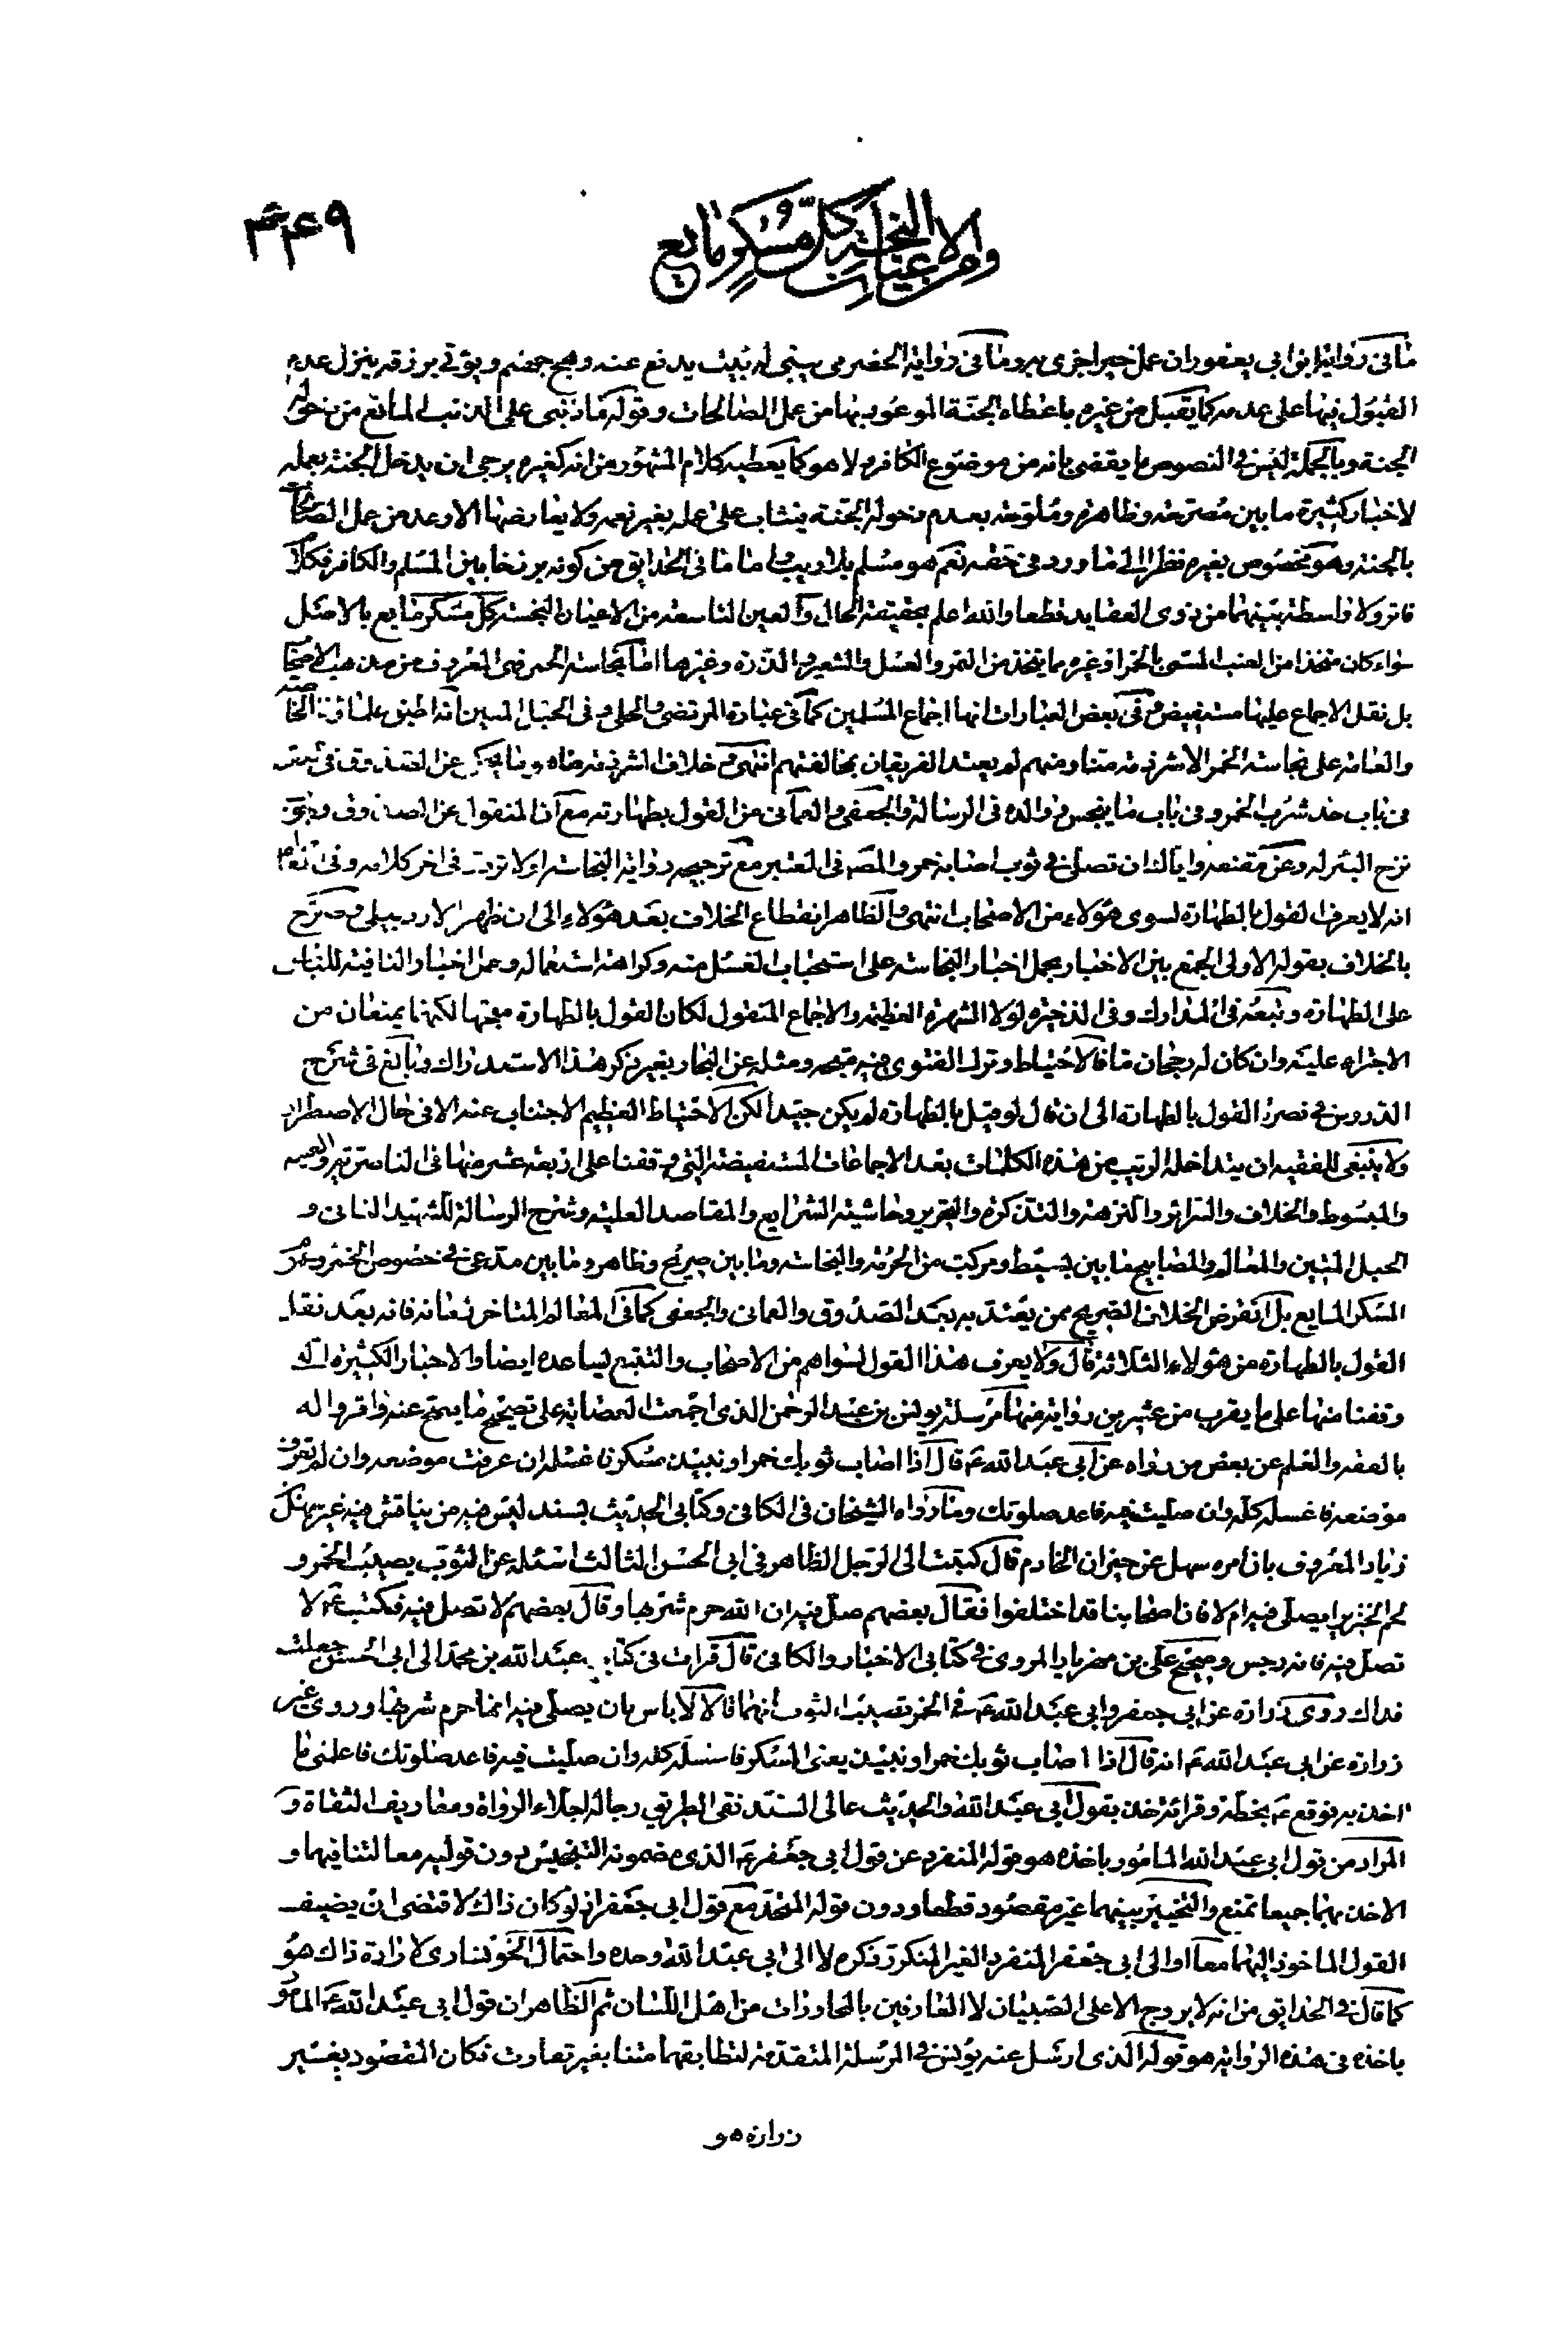 ٣۴۴٩
ومن الاعيان النجسة كل مسكر مايع
ما في رواية ابن ابي يعفور ان عمل خيرا جزى به وما في رواية الحضرمي يبنى له بيت يدفع عنه وهج جهنم ويؤتى برزقه ينزل عدم
القبول فيها على عدمه كما يقبل من غيره باعطاء الجنة الموعود بها من عمل الصالحات وقوله ما ذنبي على الذنب المانع من دخوله
الجنة وبالجملة ليس في النصوص ما يقضى بانه من موضوع الكافر لا هو كما يعطيه كلام المشهور من انه كغيره يرجى ان يدخل الجنة بعمله
لاخبار كثيرة ما بين مصرحة وظاهرة وملوحة بعدم دخوله الجنة يثاب على عمله بغير نعم ولا يعارضها الا وعد من عمل الصالحات
بالجنة وهو مخصوص بغيره نظرا الى ما ورد في حقه نعم هو مسلم بلا ريب واما ما في الحدائق من كونه برزخا بين المسلم والكافر فكلا
فانه لا واسطة بينهما من ذوى العقايد قطعا والله اعلم بحقيقة الحال والعين التاسعة من الاعيان النجسة كل مسكر مايع بالاصل
سواء كان متخذا من العنب المسمى بالخمر او غيره مما يتخذ من التمر والعسل والشعير والذرة وغيرها اما نجاسة الخمر فهى المعروف من مذهب الاصحاب
بل نقل الاجماع عليها مستفيض وفي بعض العبارات انها اجماع المسلمين كما في عبارة المرتضى والحلي وفى الحبل المتين انه اطبق علماؤنا الخاصة
والعامة على نجاسة الخمر الا شرذمة منا ومنهم لم يعتد الفريقان بمخالفتهم انتهى وخلاف الشرذمة منا هو ما يحكى عن الصدوق في
في باب حد شرب الخمر وفي باب ما ينجس ووالده في الرسالة والجعفي والعماني من القول بطهارته مع ان المنقول عن الصدوق وجوب
نزح البئر له وعن مقنعه واياك ان تصلى في ثوب اصابه خمر والمصنف في المعتبر مع ترجيحه رواية النجاسة اولا تردد في اخر كلامه وفي
انه لا يعرف القول بالطهارة لسوى هؤلاء من الاصحاب انتهى والظاهر انقطاع الخلاف بعد هؤلاء الى ان ظهر الاردبيلى وصرح
بالخلاف بقوله الاولى الجمع بين الاخبار بحمل اخبار النجاسة على استحباب الغسل منه وكراهة استعماله وحمل اخبار النافية للباس
على الطهارة وتبعه في المدارك وفي الذخيرة لولا الشهرة العظيمة والاجماع المنقول لكان القول بالطهارة متجها لكنهما يمنعان من
الاجتراء عليه وان كان له رجحان ما فالاحتياط وترك الفتوى فيه متجه ومثله عن البحار بغير ذكر هذا الاستدراك وبالغ في شرح
الدروس في نصرة القول بالطهارة الى ان قال لو قيل بالطهارة لم يكن جيدا لكن الاحتياط العظيم الاجتناب عنه الا في حال الاضطرار
ولا ينبغى للفقيه ان يتداخله الريب من هذه الكلمات بعد الاجماعات المستفيضة التي وقفنا على اربعة عشر منها في الناصرية والغنية
والمبسوط والخلاف والسرائر والنزهة والتذكرة والتحرير وحاشية الشرايع والمقاصد العلية وشرح الرسالة للشهيد الثاني و
الحبل المتين والمعالم والمصابيح ما بين بسيط ومركب من الحرمة والنجاسة وما بين صريح وظاهر وما بين مدعى في خصوص الخمر وعموم
المسكر المايع بل انقرض الخلاف الصريح ممن يعتد به بعد الصدوق والعماني والجعفي كما في المعالم المتاخر زمانه فانه بعد نقل
القول بالطهارة من هؤلاء الثلاثة قال ولا يعرف هذا القول لسواهم من الاصحاب والتتبع يساعده ايضا والاخبار الكثيرة التي
وقفنا منها على ما يقرب من عشرين رواية منها مرسلة يونس بن عبد الرحمن الذى اجمعت العصابة على تصحيح ما يصح عنه واقروا له
بالفقه والعلم عن بعض من رواه عن ابي عبد الله ع قال اذا اصاب ثوبك خمر او نبيذ مسكر فاغسله ان عرفت موضعه وان لم تعرف
موضعه فاغسله كله وان صليت فيه فاعد صلوتك وما رواه الشيخان في الكافي وكتابي الحديث بسند ليس فيه من يناقش فيه غير سهل بن
زياد المعروف بان امره سهل عن خيران الخادم قال كتبت الى الرجل الظاهر في ابي الحسن الثالث اسئله عن الثوب يصيبه الخمر و
لحم الخنزير ايصلى فيه ام لا فان اصحابنا قد اختلفوا فقال بعضهم صل فيه ان الله حرم شربها وقال بعضهم لا تصل فيه فكتب ع لا
تصل فيه فانه رجس وصحيح علي بن مهزيار المروى في كتابي الاخبار والكافي قال قرات في كتاب عبد الله بن محمد الى ابي الحسن جعلت
فداك روى زرارة عن ابي جعفر وابي عبد الله ع في الخمر تصيب الثوب انهما قالا لا باس بان يصلى فيه انما حرم شربها وروى غير
زرارة عن ابي عبد الله ع انه قال اذا اصاب ثوبك خمر او نبيذ يعنى المسكر فاغسله كله وان صليت فيه فاعد صلوتك فاعلمنى ما
اخذ به فوقع ع بخطه وقرائته خذ بقول ابي عبد الله والحديث عالى السند نقى الطريق رجاله اجلاء الرواة ومعاريف الثقاة و
المراد من قول ابي عبد الله المامور باخذه هو قوله المنفرد عن قول ابي جعفر ع الذى مضمونه التنجيس دون قوليه معا لتنافيهما و
الاخذ بهما جميعا تمنع والتخيير بينهما غير مقصود قطعا ودون قوله المتحد مع قول ابي جعفر اذ لو كان ذاك لاقتضى ان يضيف
القول الماخوذ اليهما معا او الى ابي جعفر المنفرد الغير المنكرر ذكره لا الى ابي عبد الله وحده واحتمال ارادة ذاك هو
كما قال في الحدايق من انه لا يروج الا على الصبيان لا العارفين بالمحاورات من اهل اللسان ثم الظاهر ان قول ابي عبد الله ع المامور
باخذه في هذه الرواية هو قوله الذى ارسل عنه يونس في المرسلة المتقدمة لتطابقهما متنا بغير تفاوت فكان المقصود بغير
زرارة هو